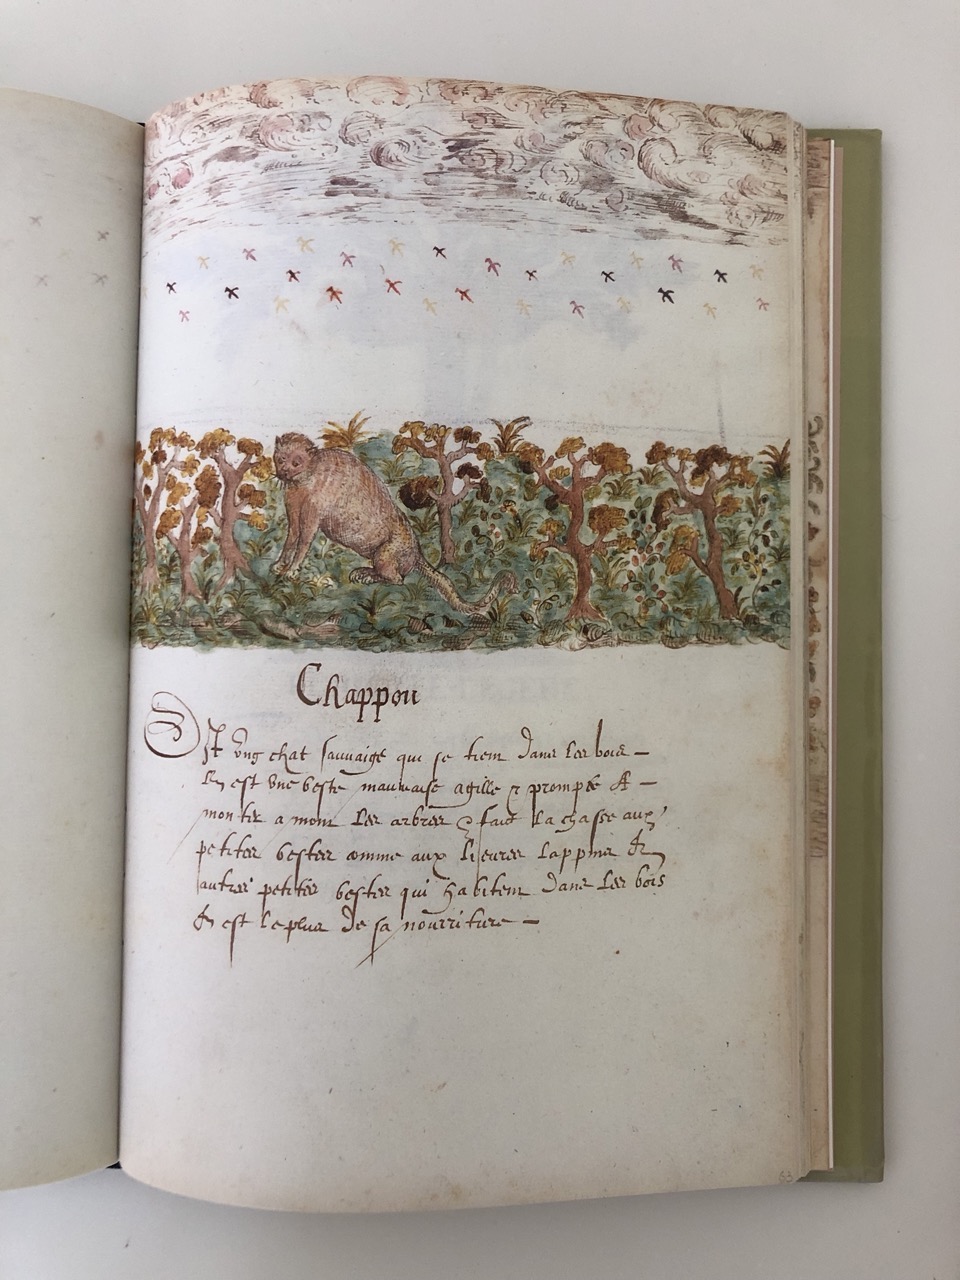 Chappou
Est ung chat sauvaige qui se tient dans les bois —
Il est une beste mauvaise agille & prompte A —
monter a mont les arbres & faict la chasse aux
petites bestes comme aux lieures lappins &
autres petites bestes qui habitent dans les bois
& est le plus de sa nourriture —
63